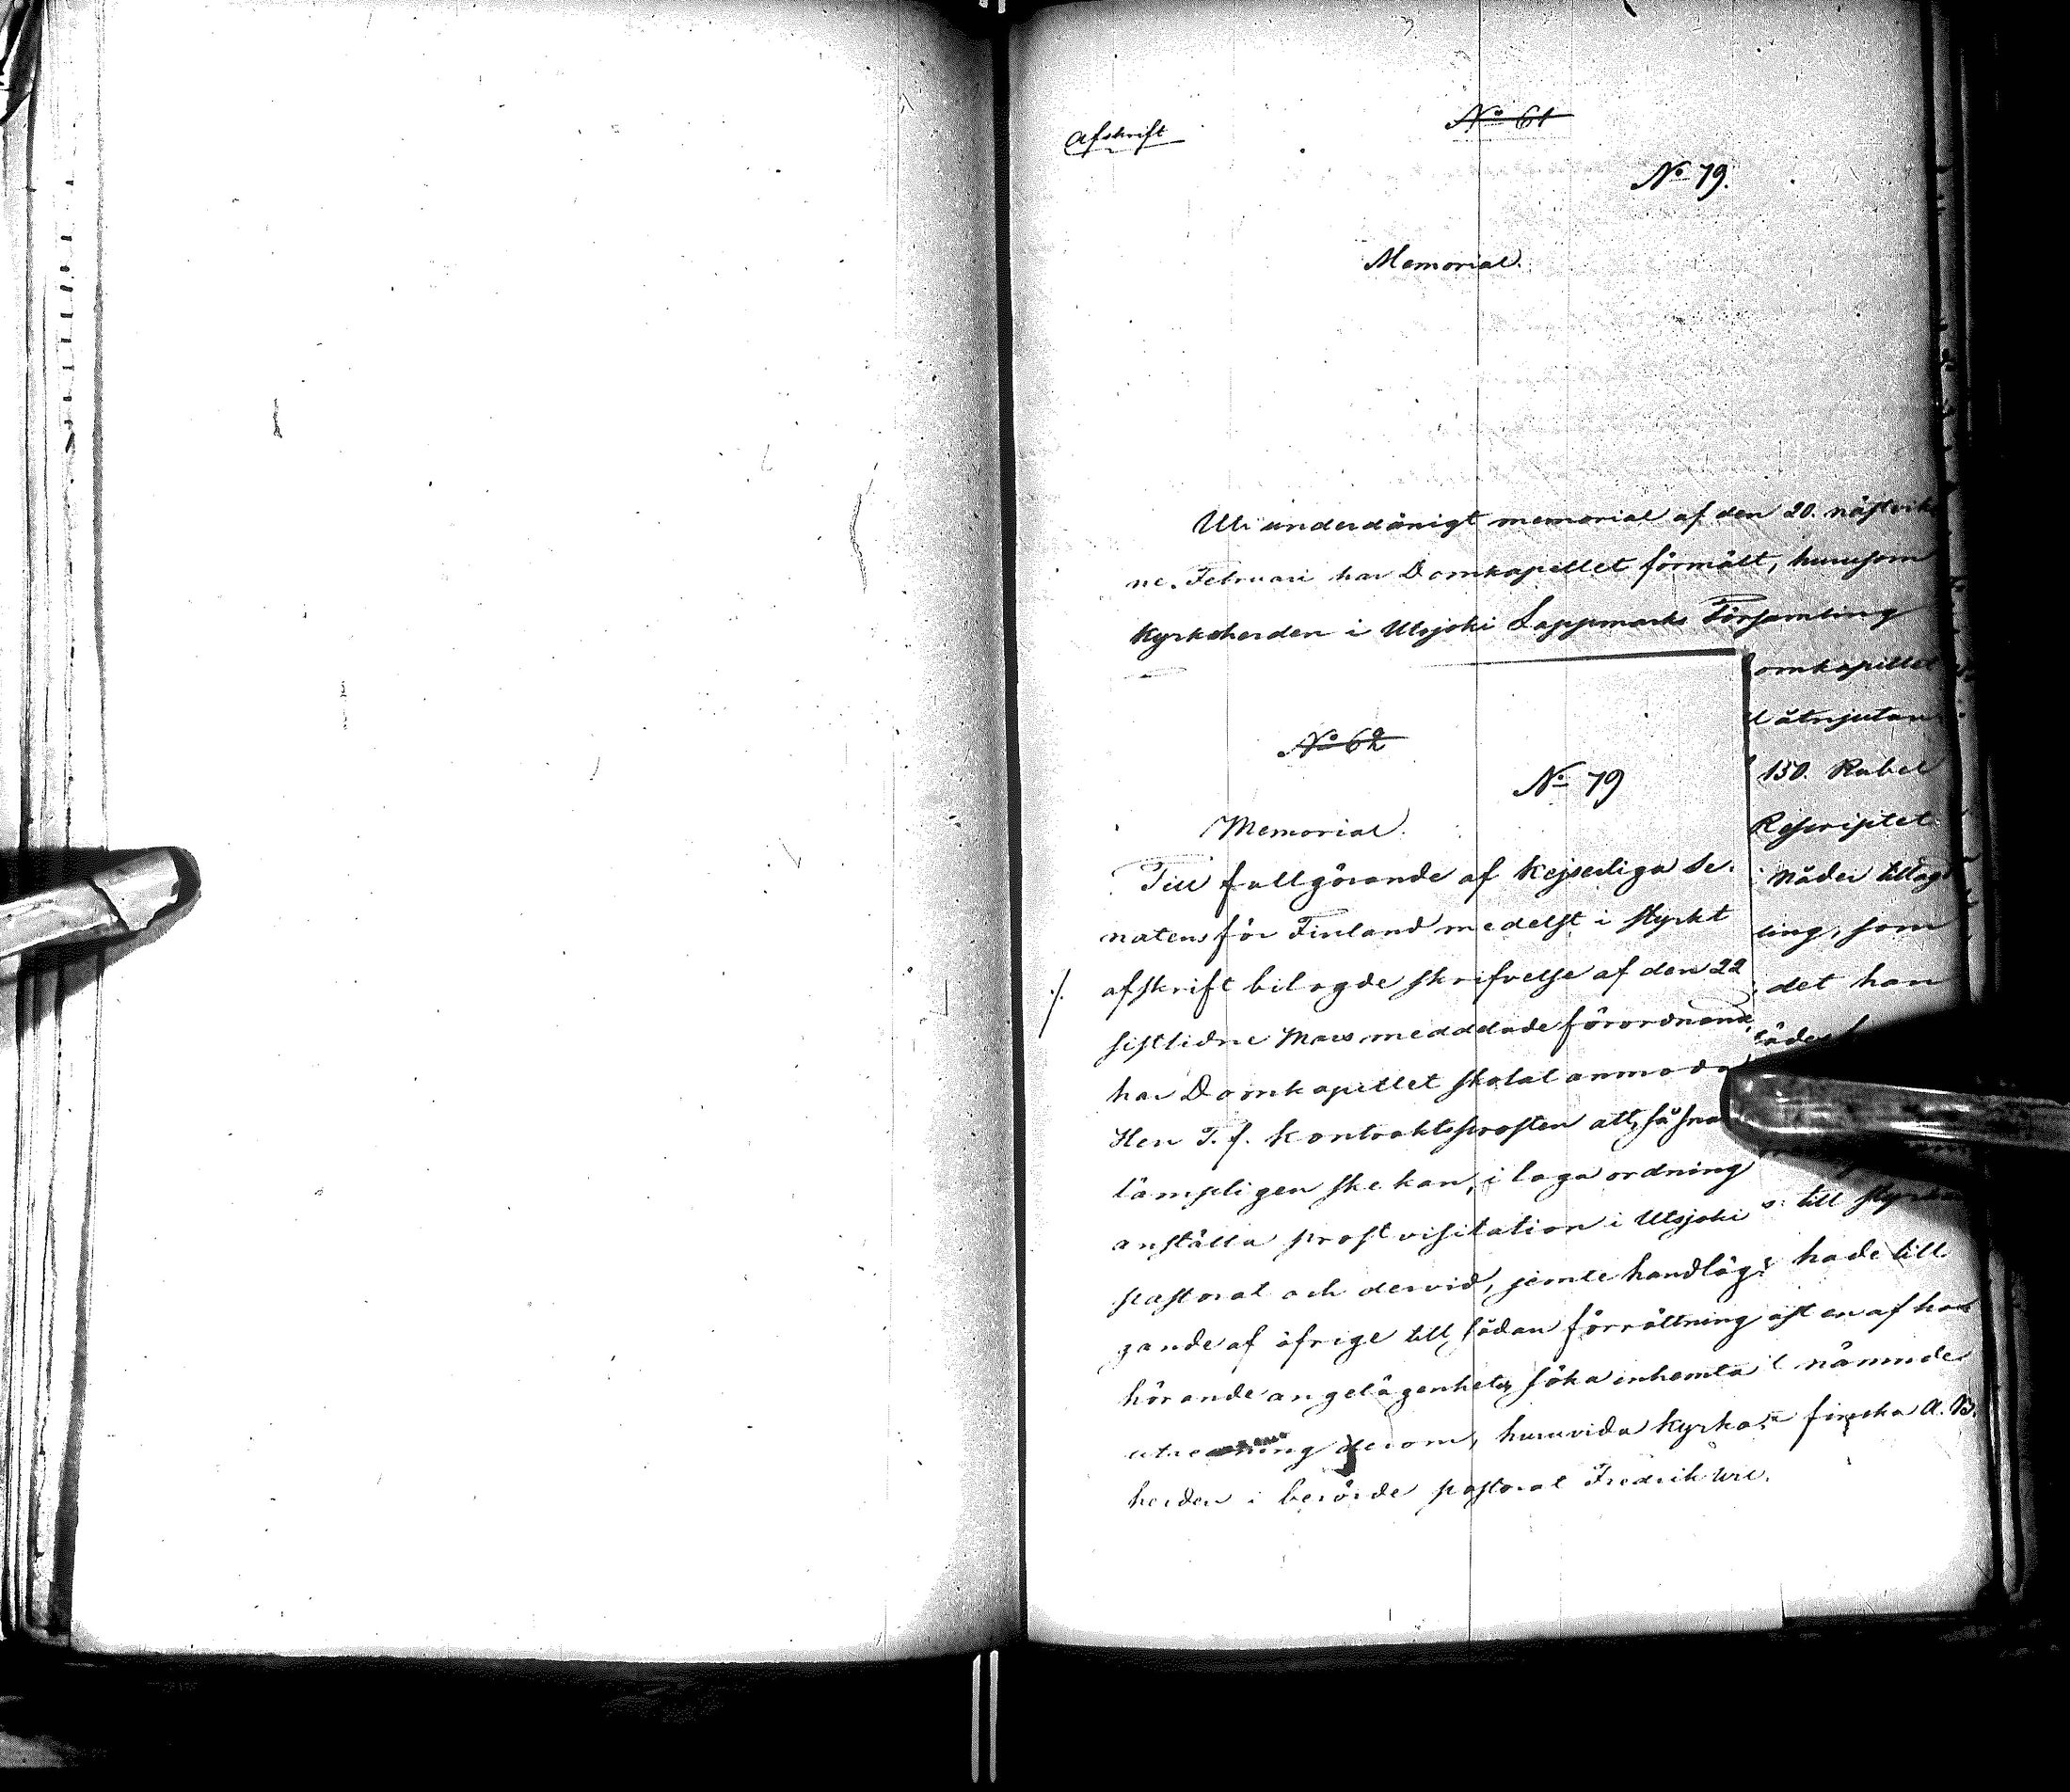 Afskrift
No 61
No 79.
Memorial.
Uti underdånigt memorial af den 20. nästvik
ne. Februari har Domkapitlet förmält, hurusom
Kyrkoherden i Utsjoki Lappmarks Församling
omkapitlet
åtnjutan
150. Rubel
Rescriptet
Nåder tillag
ling, som
det han
till styrka
hade till
nämnde
finska A. B.
No 62
No 79
Memorial.
Till fullgörande af Kejserliga Se-
natens för Finland medelst i styrkt
./. afskrift bilagde skrifvelse af den 22
sistlidne Mars meddelade förordnande
har Domkapitlet skolat anmoda
Herr T. f. Kontraktsprosten att, så sna
lämpligen ske kan, i laga ordning
anställa prostvisitation i Utsjoki
pastorat och dervid, jemte handläg-
gande af öfrige till sådan förrättning
hörande angelägenheter, söka inhemta
utredning derom, huruvida Kyrko-
herden i berörde pastorat Fredrik Wil.